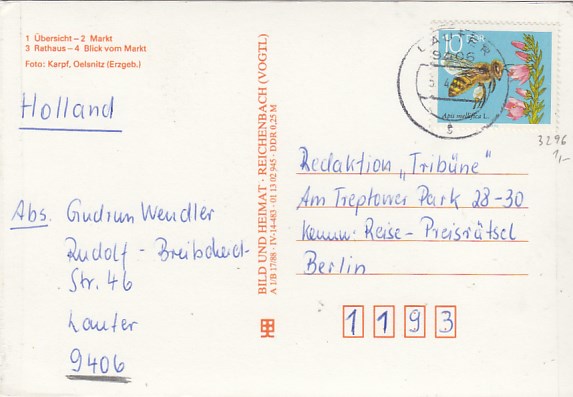 1 Übersicht – 2 Markt
3 Rathaus – 4 Blick vom Markt
Foto: Karpf, Oelsnitz (Erzgeb.)
Holland
Abs. Gudrun Wendler
Rudolf - Breitscheid-
Str. 46
Lauter
9406
BILD UND HEIMAT · REICHENBACH (VOGTL)
A 1/B 17/88 · IV-14-483 · 01 13 02 945 · DDR 0,25 M
10 DDR
Apis mellifica L.
LAUTER
3296
1,-
Redaktion „Tribüne"
Am Treptower Park 28-30
Kennw: Reise-Preisrätsel
Berlin
1193